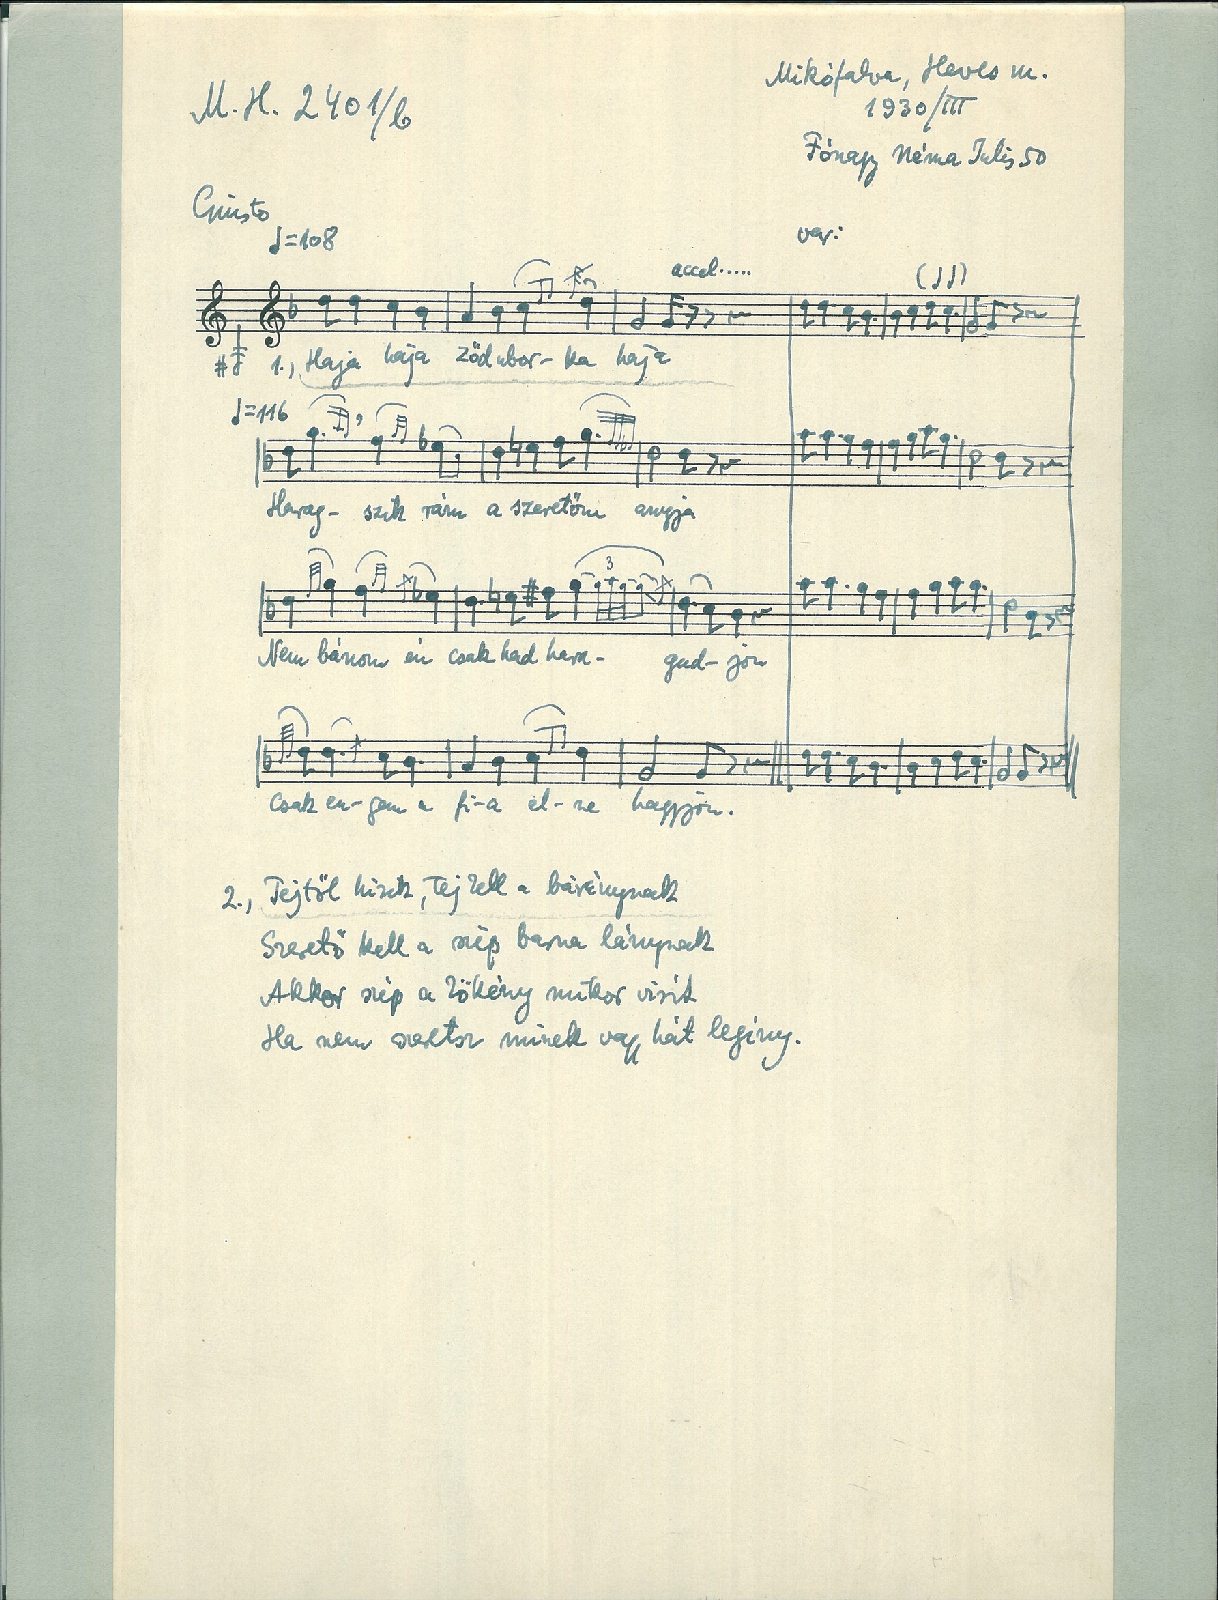 M.H. 2401/b
Mikófalva, Heves m.
1930/III
Fónagy Néma Julis 50
Giusto
♩=108
var:
accel.....
1., Haja haja ződ ubor-ka haja
♩=116
Harag- szik rám a szeretőm anyja
3
Nem bánom én csak had hara- gud-jon
Csak en-gem a fi-a el-ne hagyjon.
2., Tejtől hízik, tej kell a báránynak
Szerető kell a szép barna lánynak
Akkor szép a mikor visít
Ha nem szeretsz minek vagy hát legény.